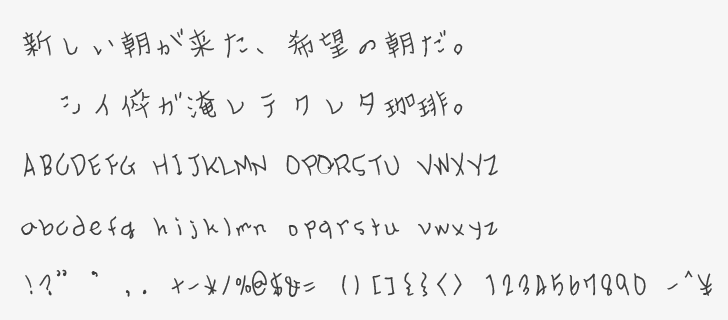 新しい朝が来た、希望の朝だ。
シイ倅が淹レテクレタ珈琲。
ABCDEFG HIJKLMN OPQRSTU VWXYZ
abcdefg hijklmn opqrstu vwxyz
!?" ' , . +-*/%@$&= ()[]{}<> 1234567890 -^¥